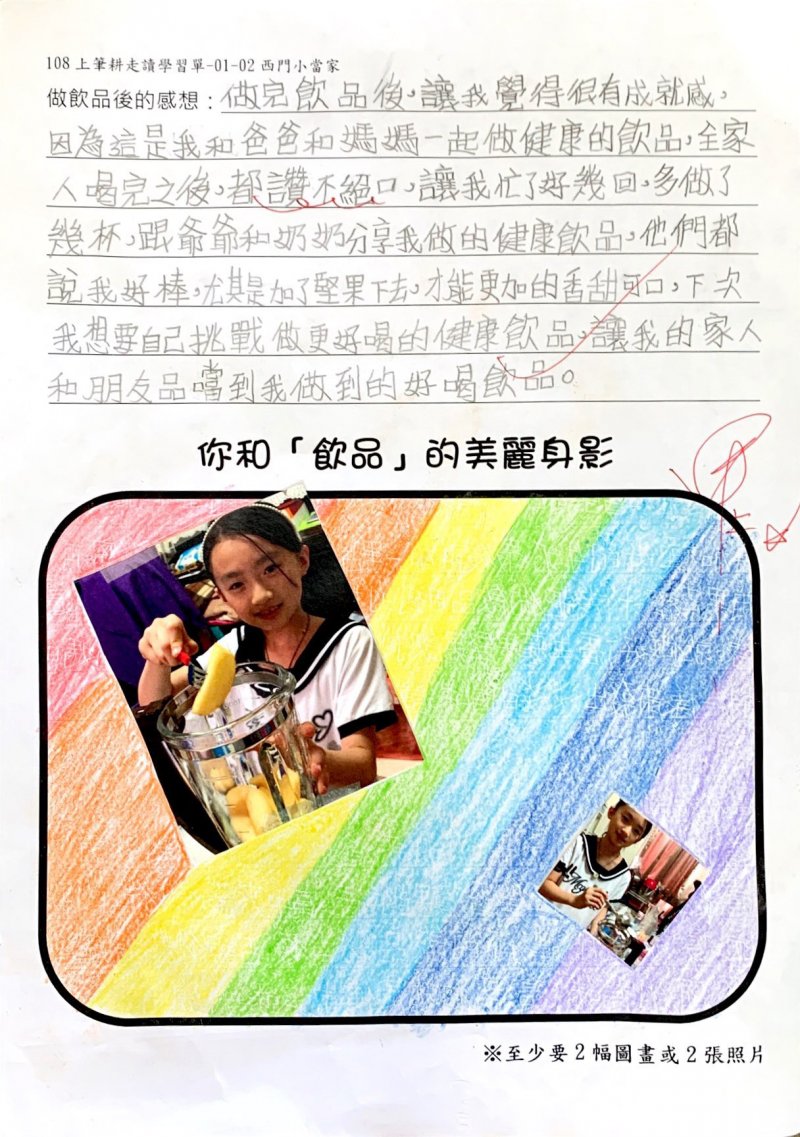 108上筆耕走讀學習單-01-02西門小當家
做飲品後的感想：做完飲品後，讓我覺得很有成就感，
因為這是我和爸爸和媽媽一起做健康的飲品，全家
人喝完之後，都讚不絕口，讓我忙了好幾回，多做了
幾杯，跟爺爺和奶奶分享我做的健康飲品，他們都
說我好棒，尤其是加了堅果下去，才能更加的香甜可口，下次
我想要自己挑戰做更好喝的健康飲品，讓我的家人
和朋友品嚐到我做到的好喝飲品。
你和「飲品」的美麗身影
※至少要2幅圖畫或2張照片